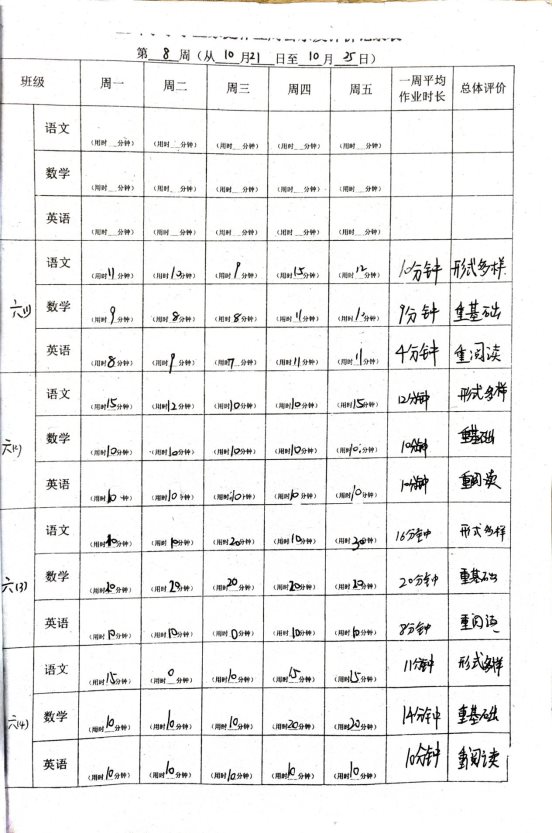 第 8 周（从 10 月 21 日至 10 月 25 日）
班级 周一 周二 周三 周四 周五 一周平均作业时长 总体评价
语文 （用时__分钟） （用时__分钟） （用时__分钟） （用时__分钟） （用时__分钟）
数学 （用时__分钟） （用时__分钟） （用时__分钟） （用时__分钟） （用时__分钟）
英语 （用时__分钟） （用时__分钟） （用时__分钟） （用时__分钟） （用时__分钟）
语文 （用时11分钟） （用时10分钟） （用时9分钟） （用时15分钟） （用时12分钟） 10分钟 形式多样
六(1) 数学 （用时9分钟） （用时8分钟） （用时8分钟） （用时11分钟） （用时10分钟） 9分钟 重基础
英语 （用时8分钟） （用时9分钟） （用时7分钟） （用时11分钟） （用时11分钟） 4分钟 重阅读
语文 （用时15分钟） （用时12分钟） （用时10分钟） （用时10分钟） （用时15分钟） 12分钟 形式多样
六(2) 数学 （用时10分钟） （用时10分钟） （用时10分钟） （用时10分钟） （用时10分钟） 10分钟 重基础
英语 （用时10分钟） （用时10分钟） （用时10分钟） （用时10分钟） （用时10分钟） 10分钟 重阅读
语文 （用时 分钟） （用时10分钟） （用时20分钟） （用时10分钟） （用时20分钟） 16分钟 形式多样
六(3) 数学 （用时20分钟） （用时20分钟） （用时20分钟） （用时20分钟） （用时20分钟） 20分钟 重基础
英语 （用时10分钟） （用时10分钟） （用时0分钟） （用时10分钟） （用时10分钟） 8分钟 重阅读
语文 （用时15分钟） （用时0分钟） （用时10分钟） （用时15分钟） （用时15分钟） 11分钟 形式多样
六(4) 数学 （用时10分钟） （用时10分钟） （用时10分钟） （用时20分钟） （用时20分钟） 14分钟 重基础
英语 （用时10分钟） （用时10分钟） （用时10分钟） （用时10分钟） （用时10分钟） 10分钟 重阅读